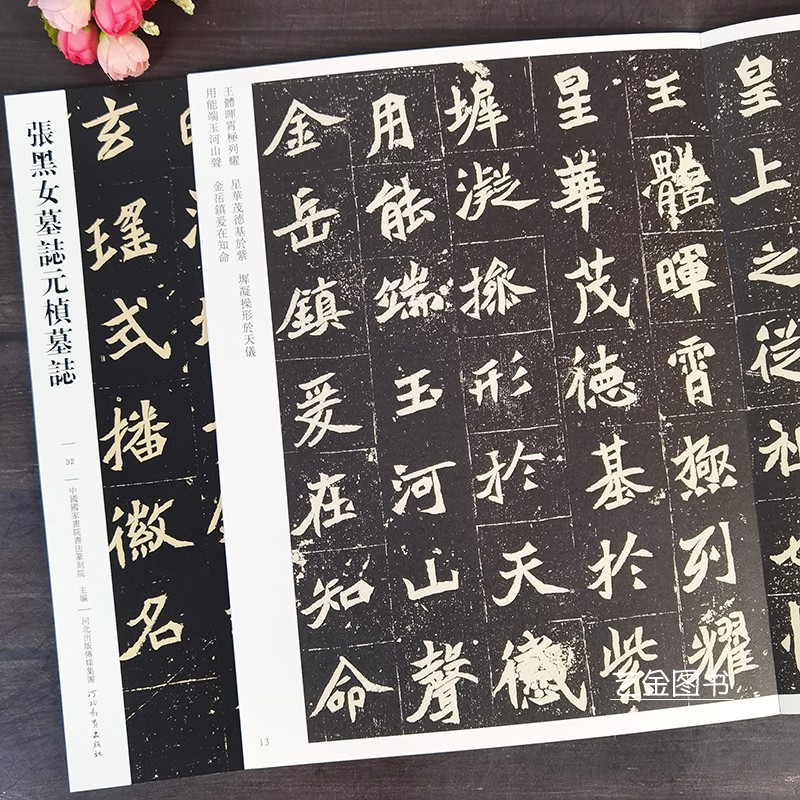 張黑女墓誌元楨墓誌
32
中國國家畫院書法篆刻院 主編
河北出版傳媒集團
河北教育出版社
玄瑤式播徽名
王體暉霄極列耀 星華茂德基於紫 墀凝操形於天儀
用能端玉河山聲 金岳鎮爰在知命
皇上之從祖
王體暉霄極列耀
星華茂德基於紫
墀凝操形於天儀
用能端玉河山聲
金岳鎮爰在知命
13
艺金图书